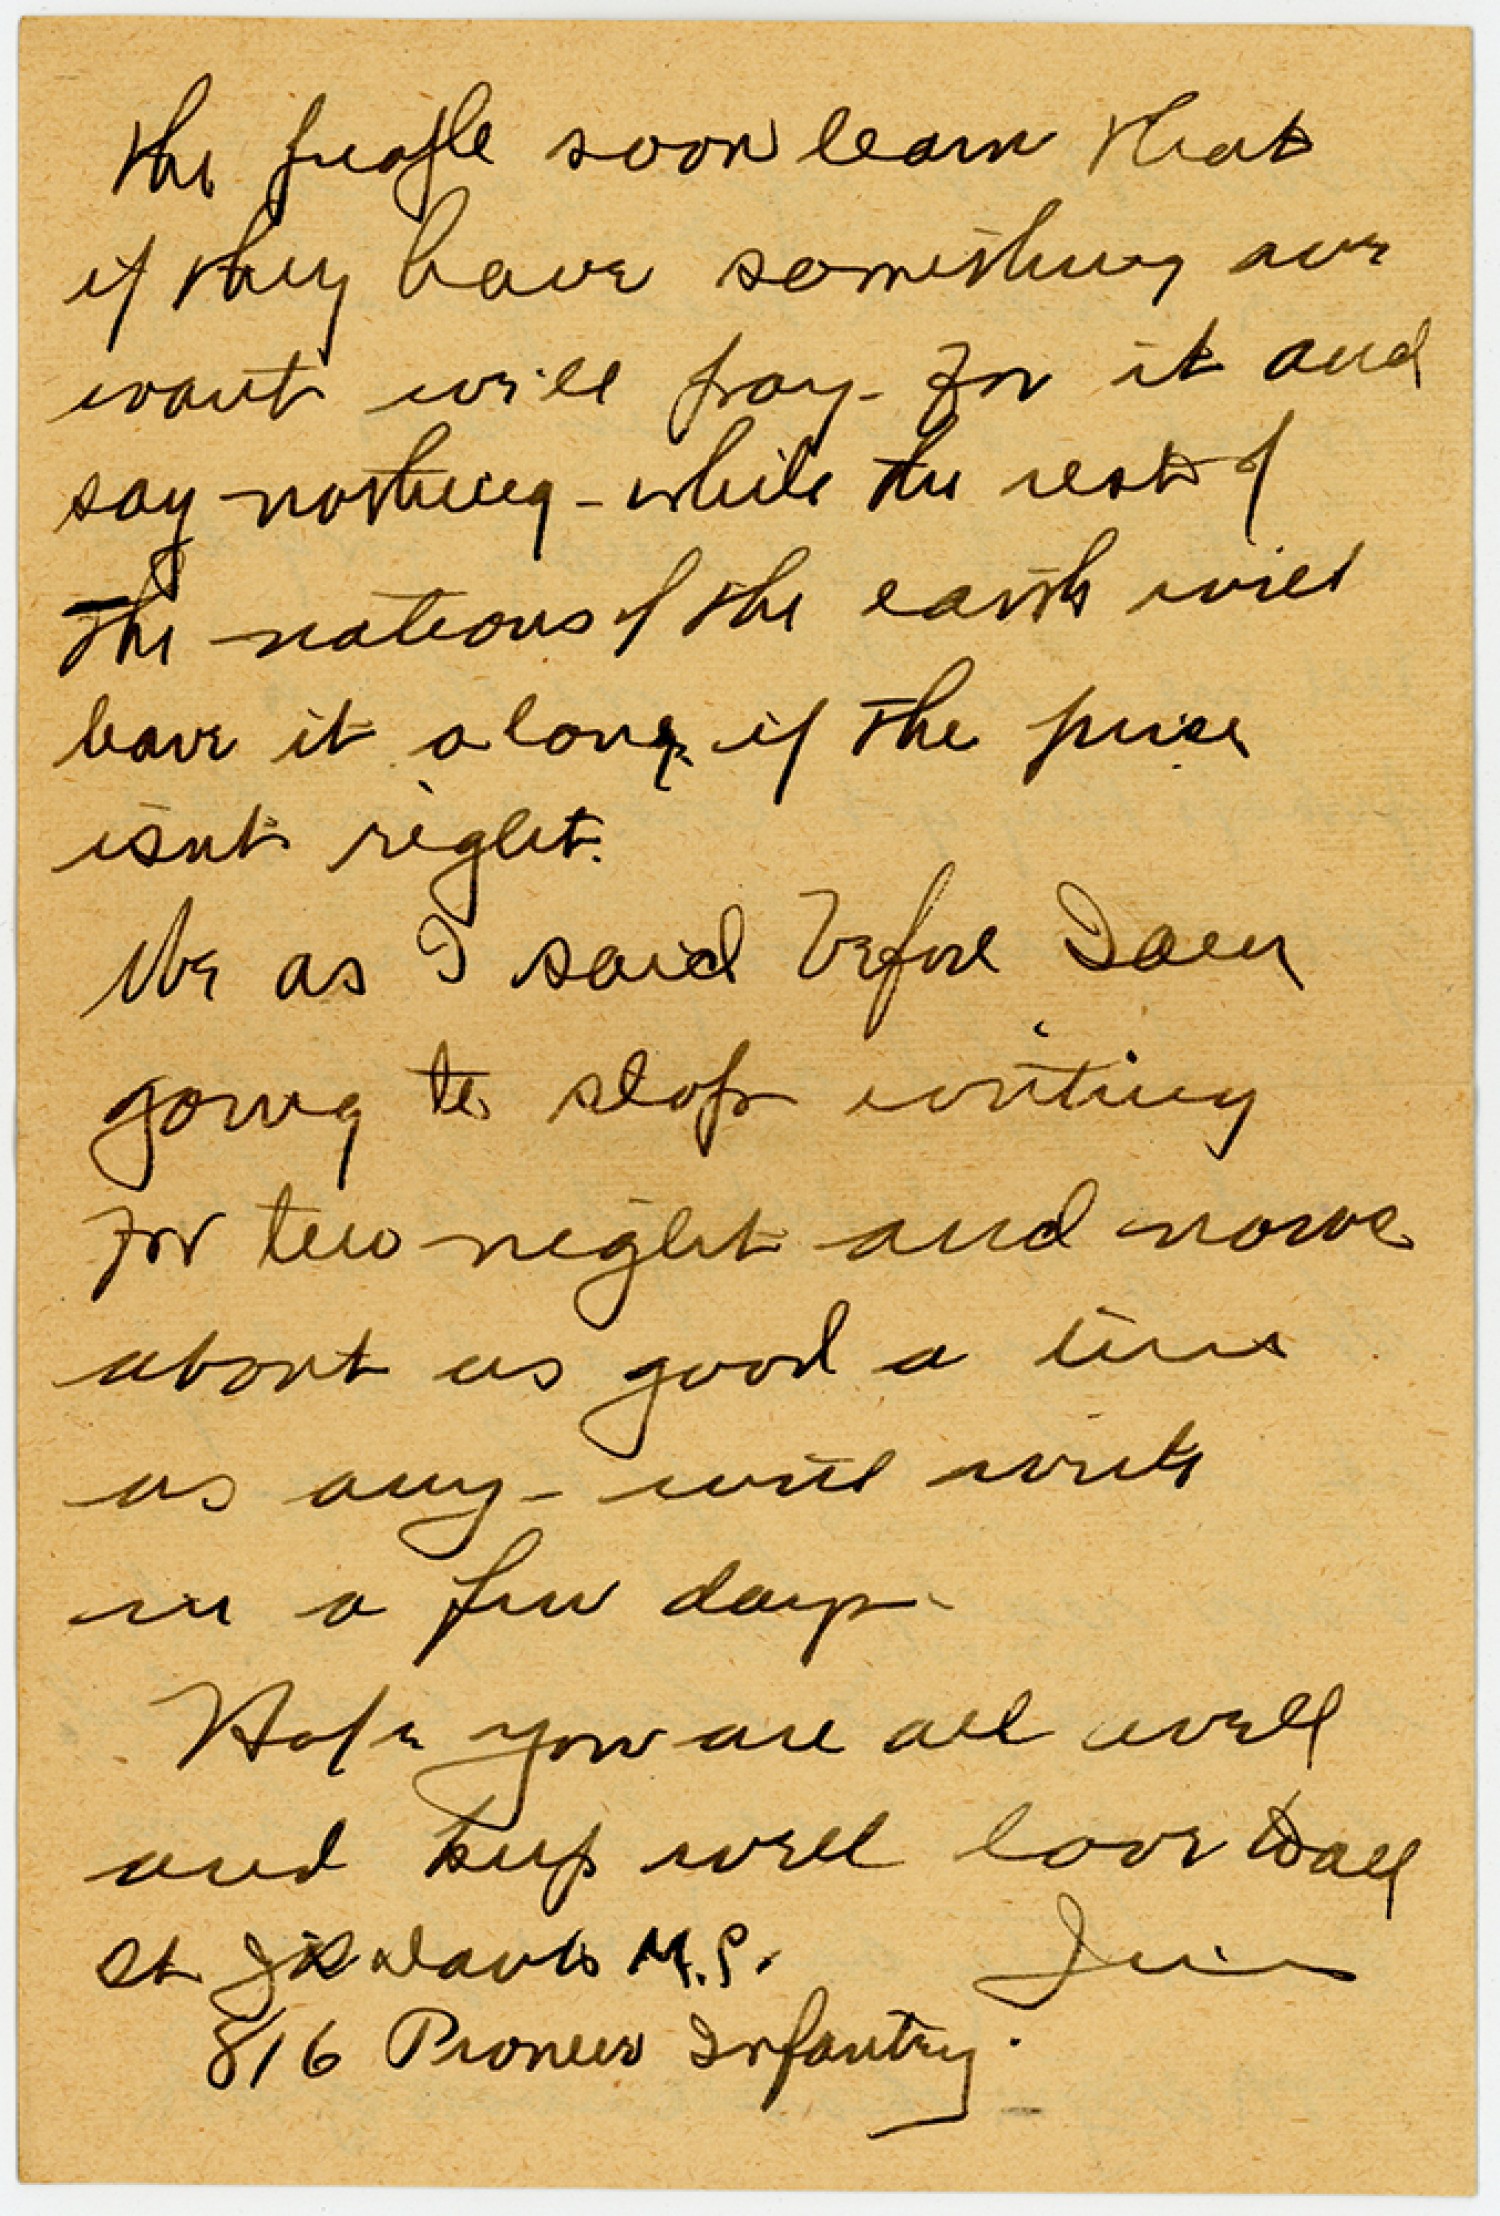 The people soon learn that
if they have something we
want will pay for it and
say nothing - while the rest of
the nations of the earth will
leave it alone, if the price
isnt right.
We as I said before I am
going to stop writing
for two night and now
about as good a time
as any - will write
in a few days.
Hope you are all well
and keep well love to all
Lt Davis M.C.
816 Pioneer Infantry.